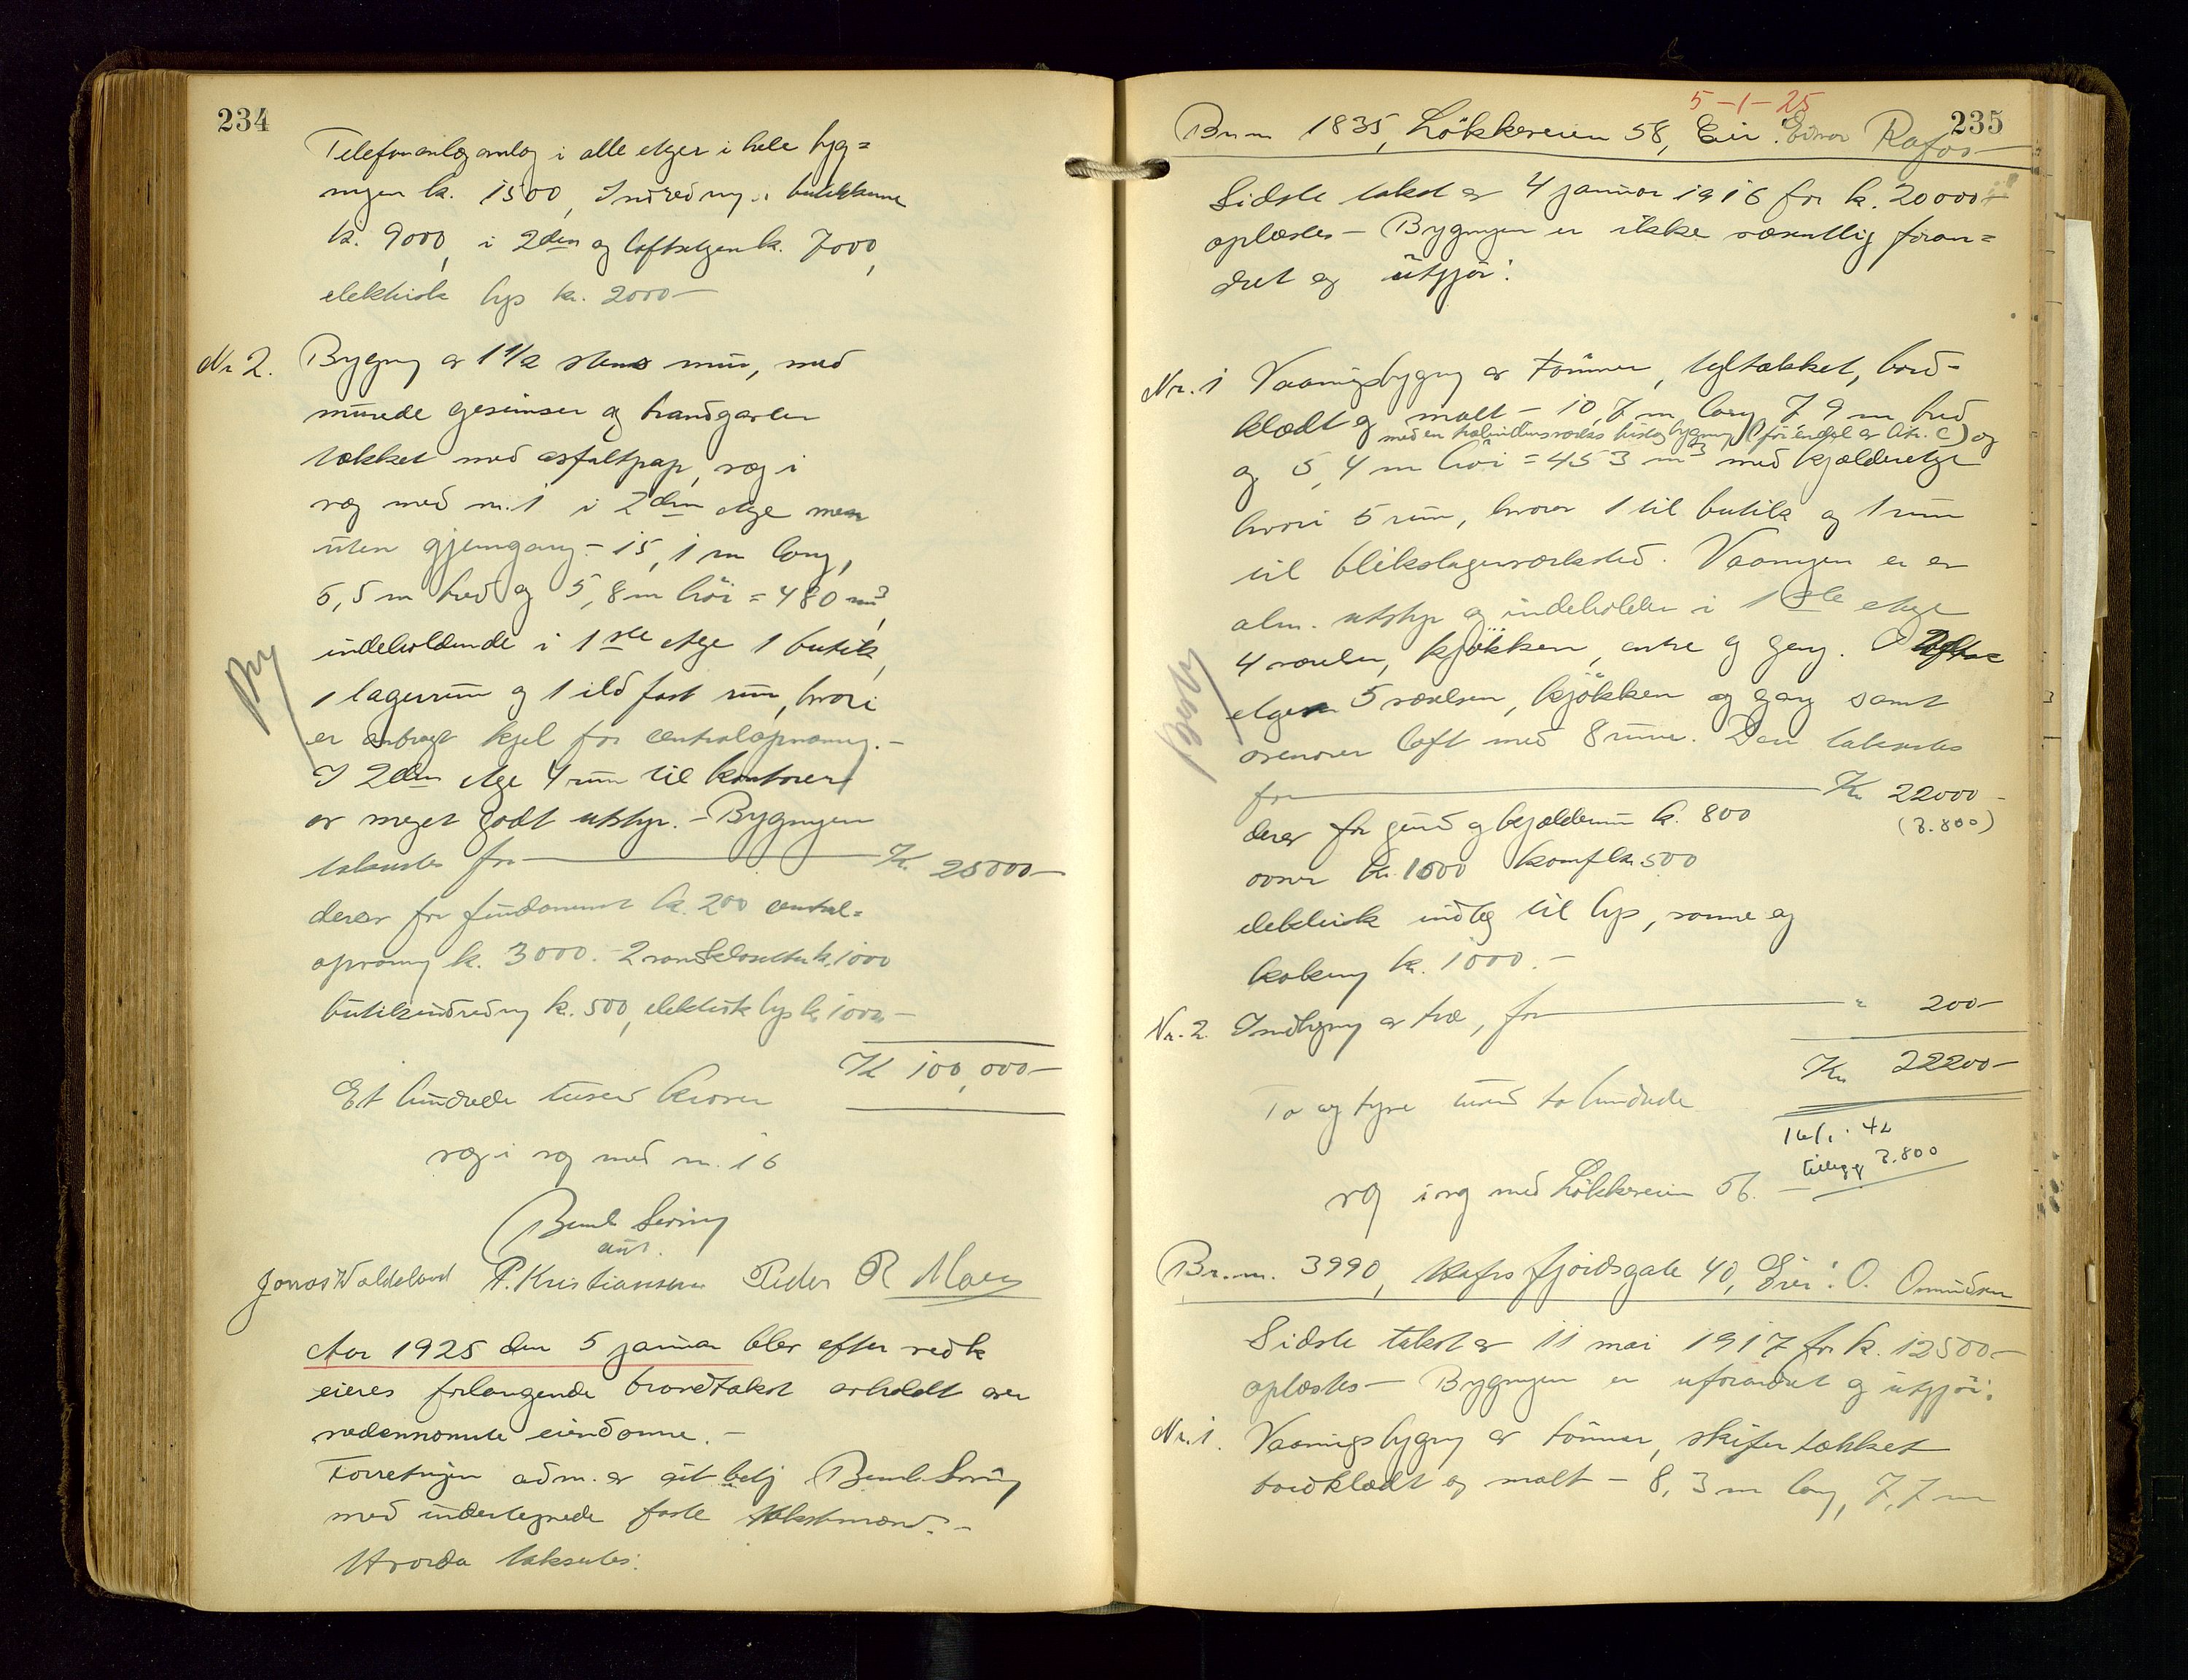 234
Telefonanlæg i alle etger i hele byg=
ningen kr. 1500, Indredning i butikkene
kr. 9000, i 2den og loftsetgen kr. 7000,
elektrisk lys kr. 2000-
Nr 2. Bygning av 1 1/2 stens mur, med
murede gesimser og brandgavler
tækket med asfaltpap, væg i
væg med nr. 1 i 2den etge men
uten gjemgang - 15,1 m lang,
5,5 m bred og 5,8 m høi = 480 m3,
indeholdende i 1ste etge 1 butik,
1 lagerrum og 1 ildfast rum, hvori
er anbragt kjel for centralopvarmng.-
I 2den etge 4 rum til kontorer
av meget godt utstyr. - Bygningen
takseres for Kr. 25000-
derav for fundament kr. 200 central=
opvarmng kr. 3000. - 2 vandklosetter kr. 1000
butikindredning kr. 500, elektrisk lys kr. 1000-
Kr 100,000-
Et hundrede tusen kroner
væg i væg med nr. 16
Bernh Sering
aut.
Jonas Waldeland P. Kristiansen Peder R Maen
Aar 1925 den 5 januar blev efter vedk
eieres forlangende brandtakst avholdt over
nedennævnte eiendomme. -
Forretnigen adm. av aut. betj Bernh. Sering
med undertegnede faste takstmænd. -
Hvorda takseres:
5-1-25
235
Br.nr 1835, Løkkeveien 58, Eier: Einar Rafos-
Sidste takst av 4 januar 1916 for kr. 20000-
oplæstes - Bygningen er ikke væsentlig foran=
dret og utgjør:
Nr. 1 Vaaningsbygng av tømmer, tegltækket, bord-
klædt og malt - 10,7 m lang 7,9 m bred
og 5,4 m høi = 453 m3 med kjælderetge
hvori 5 rum, hvorav 1 til butik og 1 rum
til blikslagerværksted. Vaaningen er av
alm. utstyr og indeholder i 1ste etge
4 værelser, kjøkken, entre og gang.
etgen 5 værelsen, kjøkken og gang samt
ovenover loft med 8 rum. Den takseres
for Kr 22000-
(7.800)
derav for grund og kjælderrum kr. 800
ovner kr. 1000 komf kr. 500
elektrisk indlæg til lys, varme og
koking kr. 1000.-
Nr. 2. Indhegng av træ, for " 200-
Kr 22200-
To og tyve tusind to hundrede
16/1. 42
tillegg 7.800
væg i væg med Løkkeveien 56.
Br.nr. 3990, Hafrsfjordsgate 40, Eier: O. Omundsen
Sidste takst av 11 mai 1917 for kr. 12500-
oplæstes - Bygningen er uforandret og utgjør:
Nr. 1. Vaaningsbygng av tømmer, skifertækket
bordklædt og malt - 8,3 m lang, 7,7 m